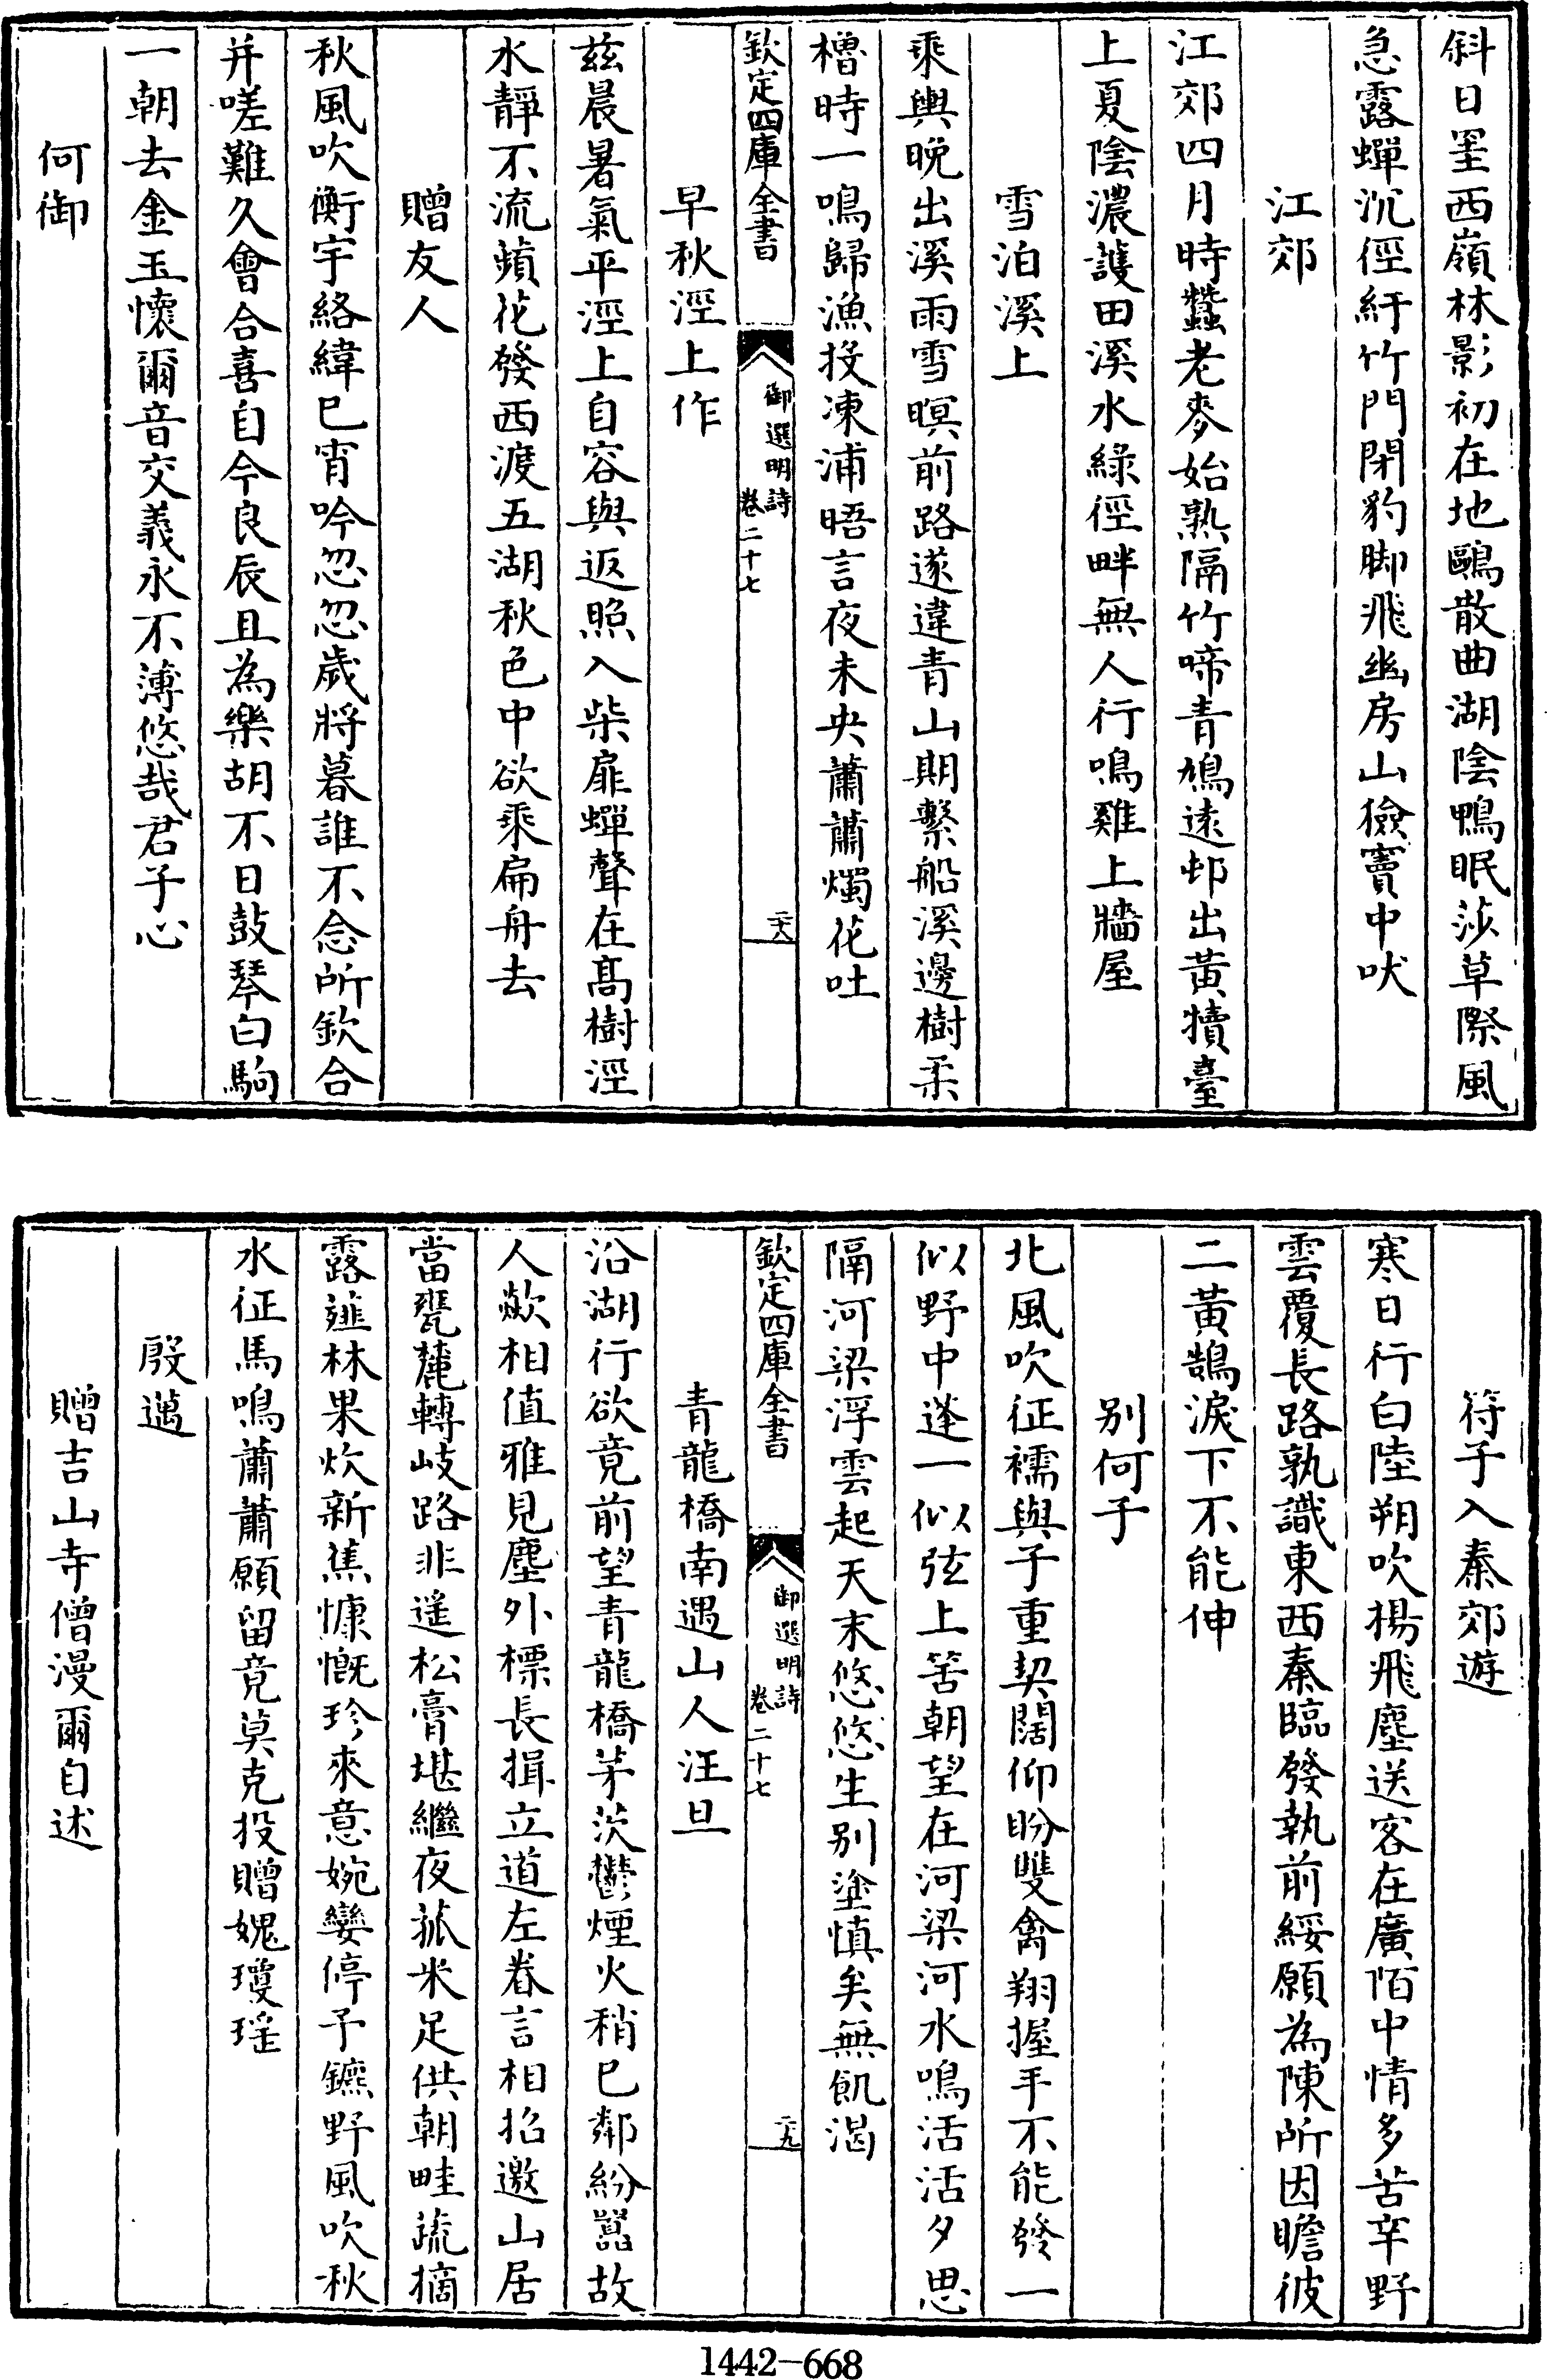 斜日墨西嶺林影初在地鷗散曲湖陰鴨眠莎草際風
急露蟬沉徑紆竹門閉豹脚飛幽房山獫竇中吠
江郊
江郊四月時蠶老麥始熟隔竹啼青鳩遠邨出黃犢臺
上夏陰濃護田溪水綠徑畔無人行鳴雞上牆屋
雪泊溪上
乘興晚出溪雨雪暝前路遂違青山期繫船溪邊樹柔
櫓時一鳴歸漁投凍浦晤言夜未央蕭蕭燭花吐
欽定四庫全書
御選明詩
卷二十七
二十八
早秋涇上作
茲晨暑氣平涇上自容與返照入柴扉蟬聲在髙樹涇
水靜不流蘋花發西渡五湖秋色中欲乘扁舟去
贈友人
秋風吹衡宇絡緯已宵吟忽忽歲將暮誰不念所欽合
并嗟難久會合喜自今良辰且為樂胡不日鼓琴白駒
一朝去金玉懷爾音交義永不薄悠哉君子心
何御
符子入秦郊遊
寒日行白陸朔吹楊飛塵送客在廣陌中情多苦辛野
雲覆長路孰識東西秦臨發執前綏願為陳所因瞻彼
二黃鵠淚下不能伸
別何子
北風吹征襦與子重契闊仰盼雙禽翔握手不能發一
似野中蓬一似弦上筈朝望在河梁河水鳴活活夕思
隔河梁浮雲起天末悠悠生別塗慎矣無飢渴
欽定四庫全書
御選明詩
卷二十七
二十九
青龍橋南遇山人汪旦
沿湖行欲竟前望青龍橋茅茨鬱煙火稍已鄰紛囂故
人歘相值雅見塵外標長揖立道左眷言相招邀山居
當甕麓轉岐路非遙松膏堪繼夜菰米足供朝畦蔬摘
露薤林果炊新蕉慷慨珍來意婉孌停予鑣野風吹秋
水征馬鳴蕭蕭願留竟莫克投贈媿瓊瑤
殷邁
贈吉山寺僧漫爾自述
1442-668